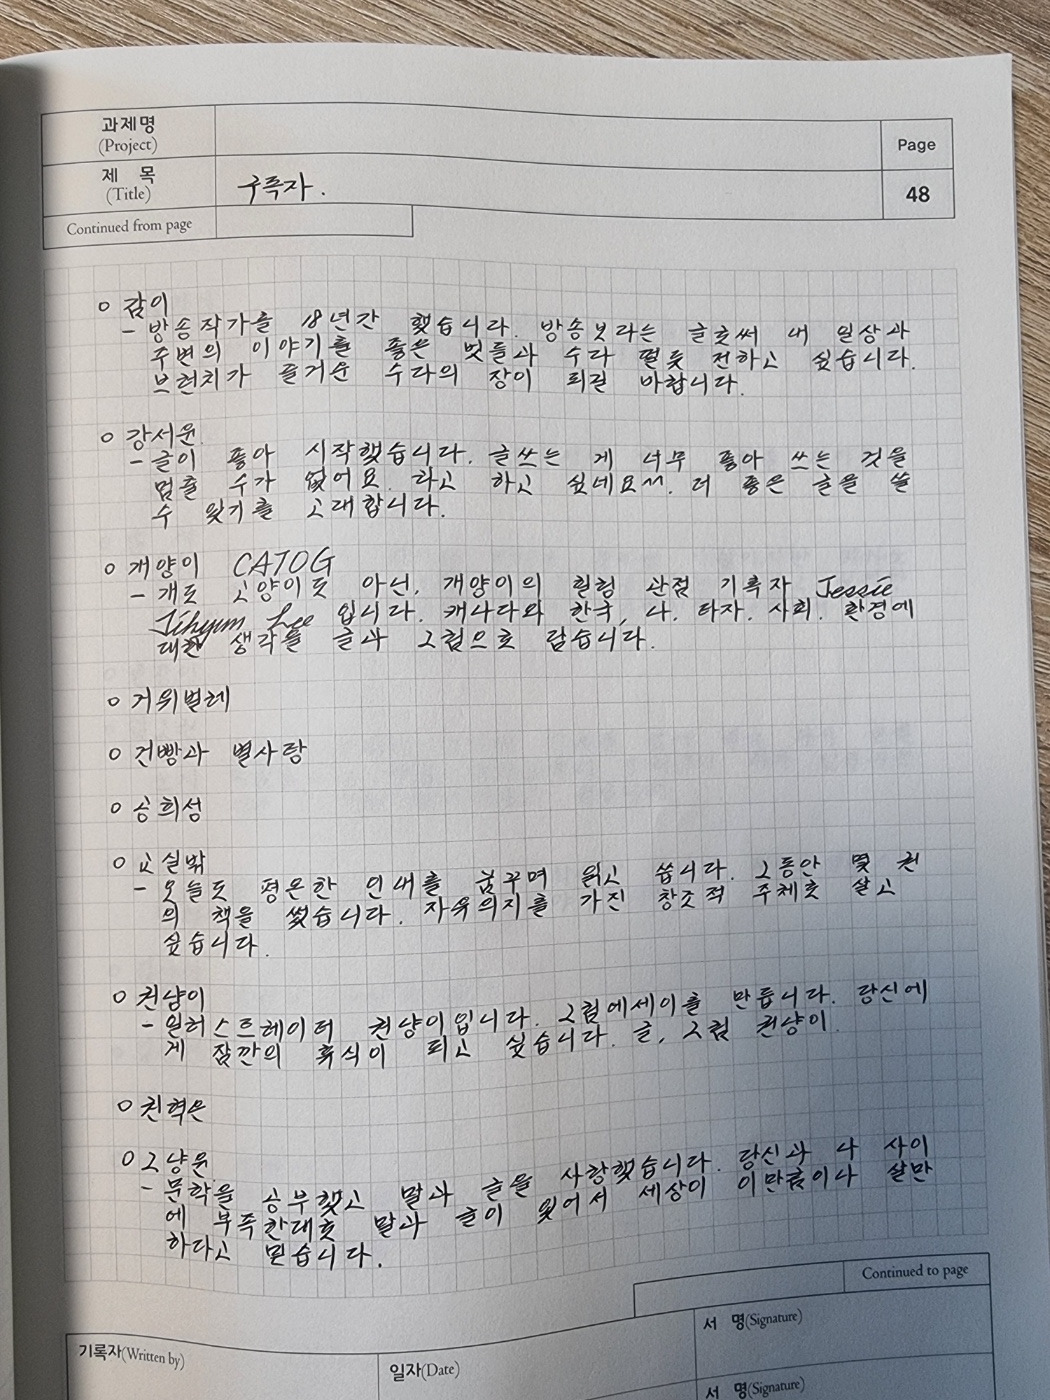 과제명
(Project)
Page
제 목
(Title)
구독자.
48
Continued from page
○ 감이
- 방송작가를 18년간 했습니다. 방송보다는 글로써 내 일상과
주변의 이야기를 좋은 벗들과 수다 떨듯 전하고 싶습니다.
브런치가 즐거운 수다의 장이 되길 바랍니다.
○ 강서운
- 글이 좋아 시작했습니다. 글쓰는 게 너무 좋아 쓰는 것을
멈출 수가 없어요 라고 하고 싶네요^^. 더 좋은 글을 쓸
수 있기를 고대합니다.
○ 개양이 CATOG
- 개도 고양이도 아닌, 개양이의 휠청 관점 기록자 Jessie
Jihyun Lee 입니다. 캐나다와 한국, 나. 타자. 사회. 환경에
대한 생각을 글과 그림으로 담습니다.
○ 거위벌레
○ 건빵과 별사탕
○ 공희섬
○ 교실밖
- 오늘도 평온한 인내를 꿈꾸며 읽고 씁니다. 그동안 몇 권
의 책을 썼습니다. 자유의지를 가진 창조적 주체로 살고
싶습니다.
○ 권냥이
- 일러스트레이터 권냥이입니다. 그림에세이를 만듭니다. 당신에
게 잠깐의 휴식이 되고 싶습니다. 글, 그림 권냥이.
○ 권혁은
○ 그냥윤
- 문학을 공부했고 말과 글을 사랑했습니다. 당신과 나 사이
에 부족한대로 말과 글이 있어서 세상이 이만큼이나 살만
하다고 믿습니다.
Continued to page
기록자(Written by)
일자(Date)
서 명(Signature)
서 명(Signature)